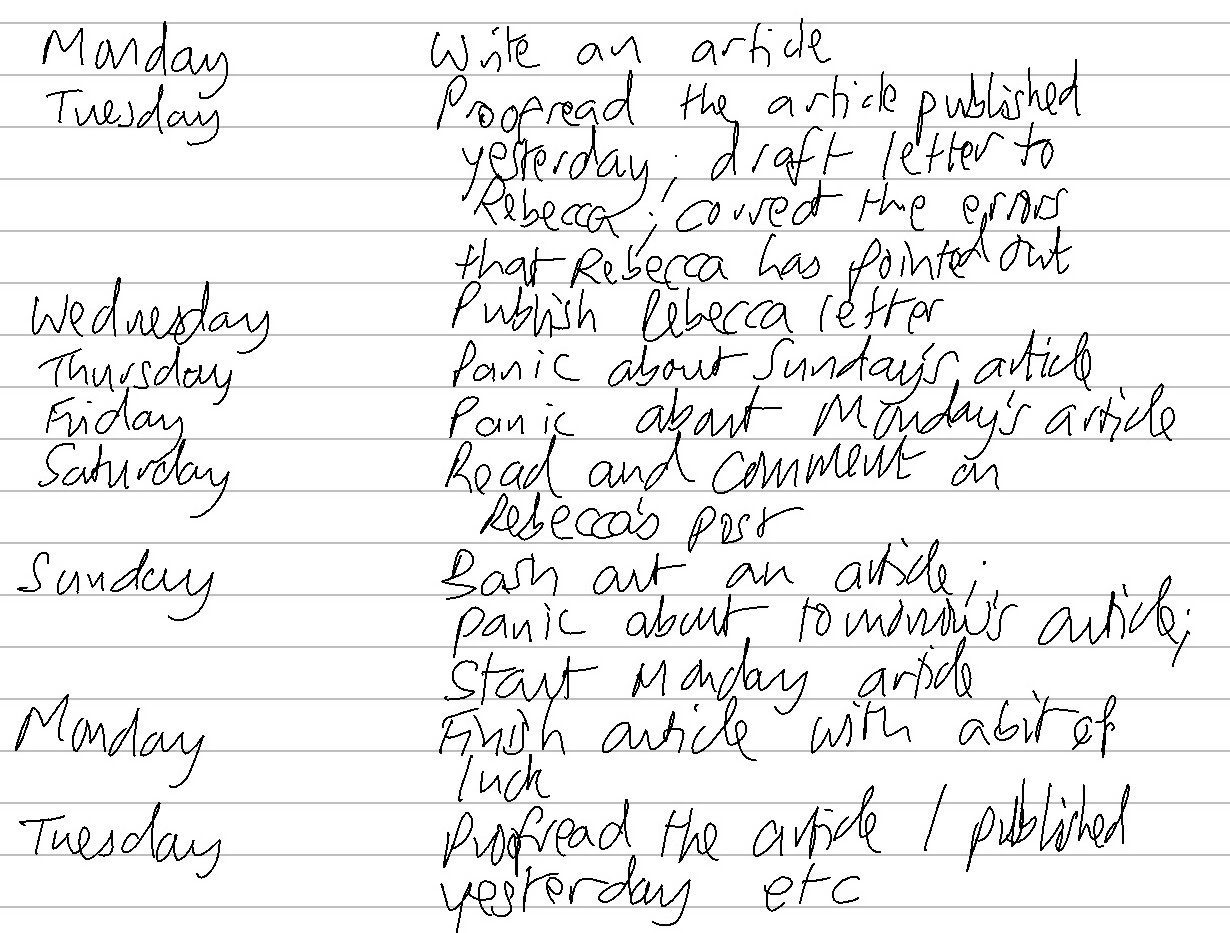 Monday Write an article
Tuesday Proofread the article published
yesterday; draft letter to
Rebecca; correct the errors
that Rebecca has pointed out
Wednesday Publish Rebecca letter
Thursday Panic about Sunday's article
Friday Panic about Monday's article
Saturday Read and comment on
Rebecca's post
Sunday Bash out an article;
panic about tomorrow's article;
Start Monday article
Monday Finish article with a bit of
luck
Tuesday Proofread the article I published
yesterday etc